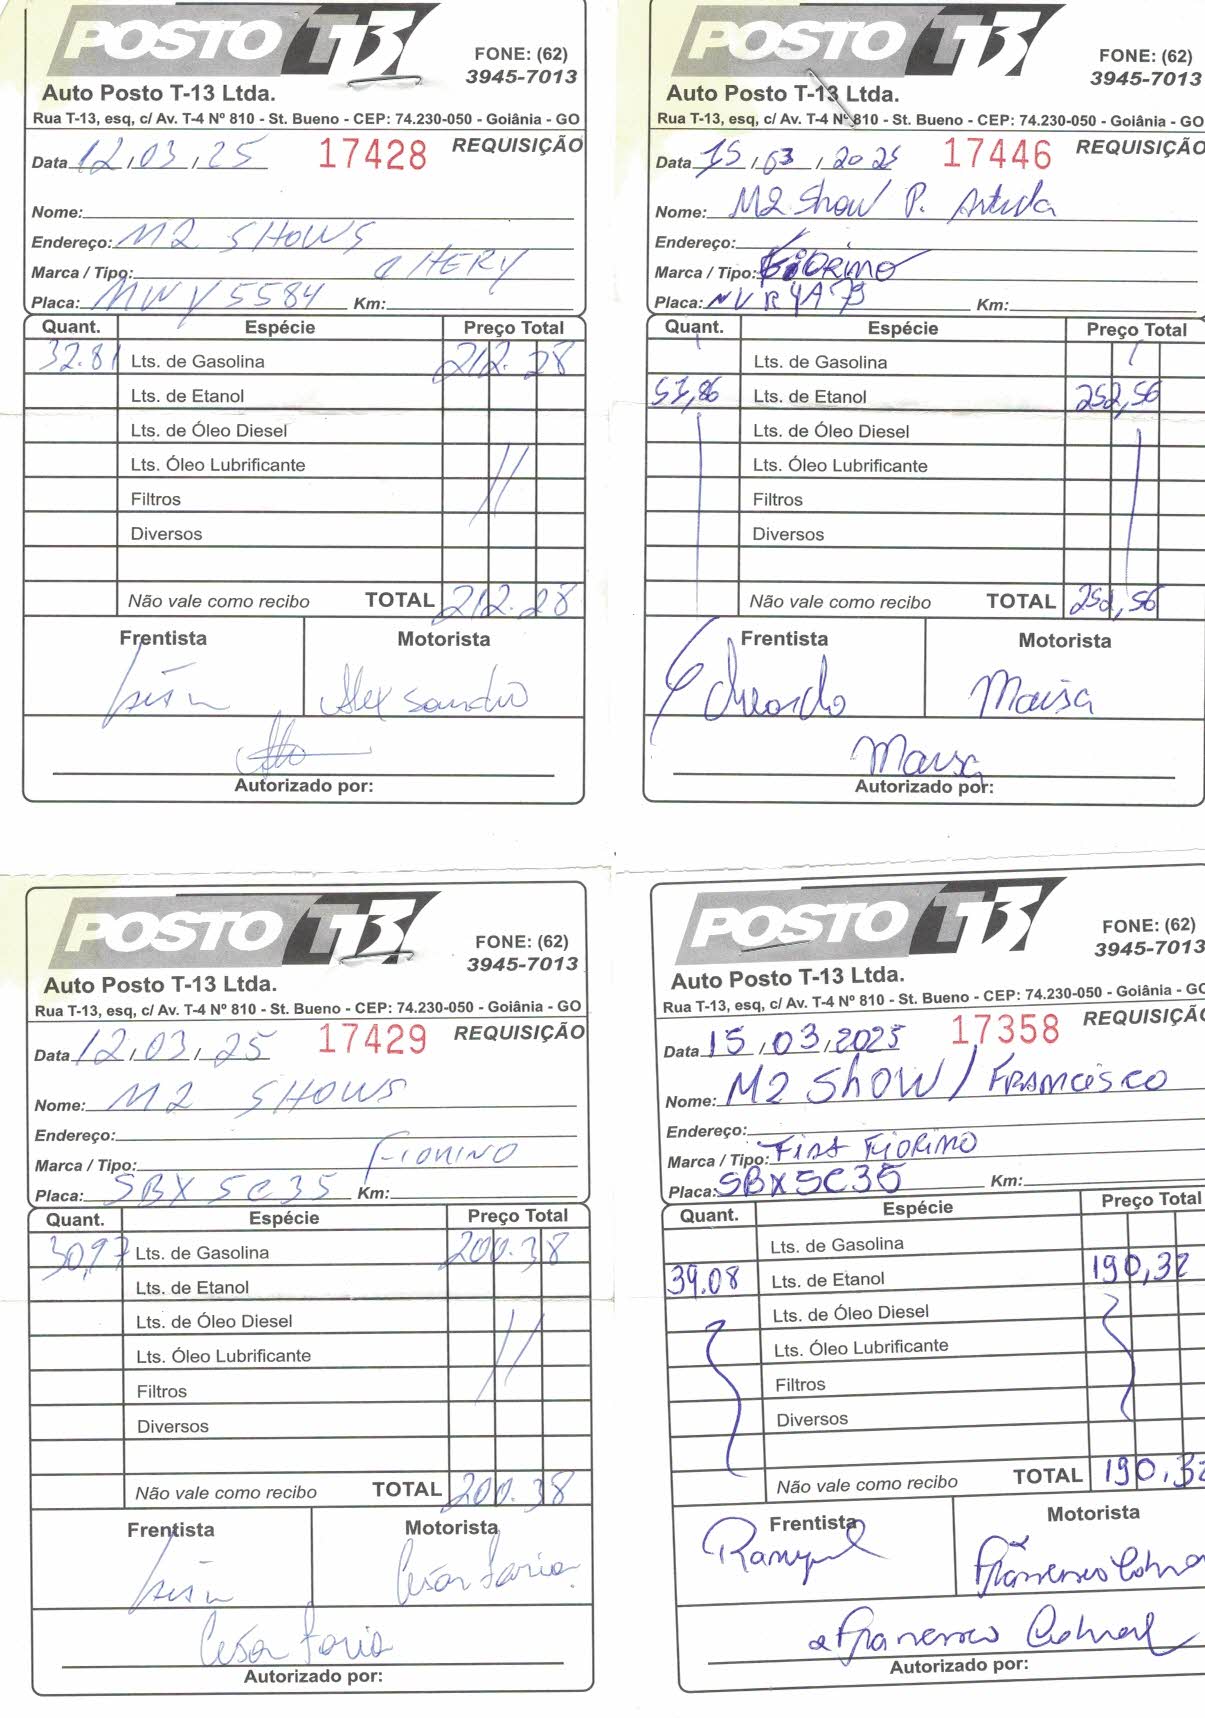 POSTO T13
FONE: (62)
3945-7013
Auto Posto T-13 Ltda.
Rua T-13, esq, c/ Av. T-4 Nº 810 - St. Bueno - CEP: 74.230-050 - Goiânia - GO
Data 12/03/25 17428 REQUISIÇÃO
Nome:
Endereço: M2 SHOWS
Marca / Tipo: CHERY
Placa: MWY5584 Km:
Quant. Espécie Preço Total
32.81 Lts. de Gasolina 212.28
Lts. de Etanol
Lts. de Óleo Diesel
Lts. Óleo Lubrificante
Filtros
Diversos
Não vale como recibo TOTAL 212.28
Frentista Motorista
Alexsandro
Autorizado por:
POSTO T13
FONE: (62)
3945-7013
Auto Posto T-13 Ltda.
Rua T-13, esq, c/ Av. T-4 Nº 810 - St. Bueno - CEP: 74.230-050 - Goiânia - GO
Data 15/03/2025 17446 REQUISIÇÃO
Nome: M2 Show P.
Endereço:
Marca / Tipo: FIORINO
Placa: NVR4A79 Km:
Quant. Espécie Preço Total
Lts. de Gasolina
51,86 Lts. de Etanol 252,56
Lts. de Óleo Diesel
Lts. Óleo Lubrificante
Filtros
Diversos
Não vale como recibo TOTAL 252,56
Frentista Motorista
Eduardo Maisa
Maisa
Autorizado por:
POSTO T13
FONE: (62)
3945-7013
Auto Posto T-13 Ltda.
Rua T-13, esq, c/ Av. T-4 Nº 810 - St. Bueno - CEP: 74.230-050 - Goiânia - GO
Data 12/03/25 17429 REQUISIÇÃO
Nome: M2 SHOWS
Endereço:
Marca / Tipo: FIORINO
Placa: SBX5C35 Km:
Quant. Espécie Preço Total
30,97 Lts. de Gasolina 200.38
Lts. de Etanol
Lts. de Óleo Diesel
Lts. Óleo Lubrificante
Filtros
Diversos
Não vale como recibo TOTAL 200.38
Frentista Motorista
Cesar Faria
Cesar Faria
Autorizado por:
POSTO T13
FONE: (62)
3945-7013
Auto Posto T-13 Ltda.
Rua T-13, esq, c/ Av. T-4 Nº 810 - St. Bueno - CEP: 74.230-050 - Goiânia - GO
Data 15/03/2025 17358 REQUISIÇÃO
Nome: M2 ShOW / FRANCISCO
Endereço:
Marca / Tipo: FIAT FIORINO
Placa: SBX5C35 Km:
Quant. Espécie Preço Total
Lts. de Gasolina
39.08 Lts. de Etanol 190,32
Lts. de Óleo Diesel
Lts. Óleo Lubrificante
Filtros
Diversos
Não vale como recibo TOTAL 190,32
Frentista Motorista
Francisco Cabral
Autorizado por: